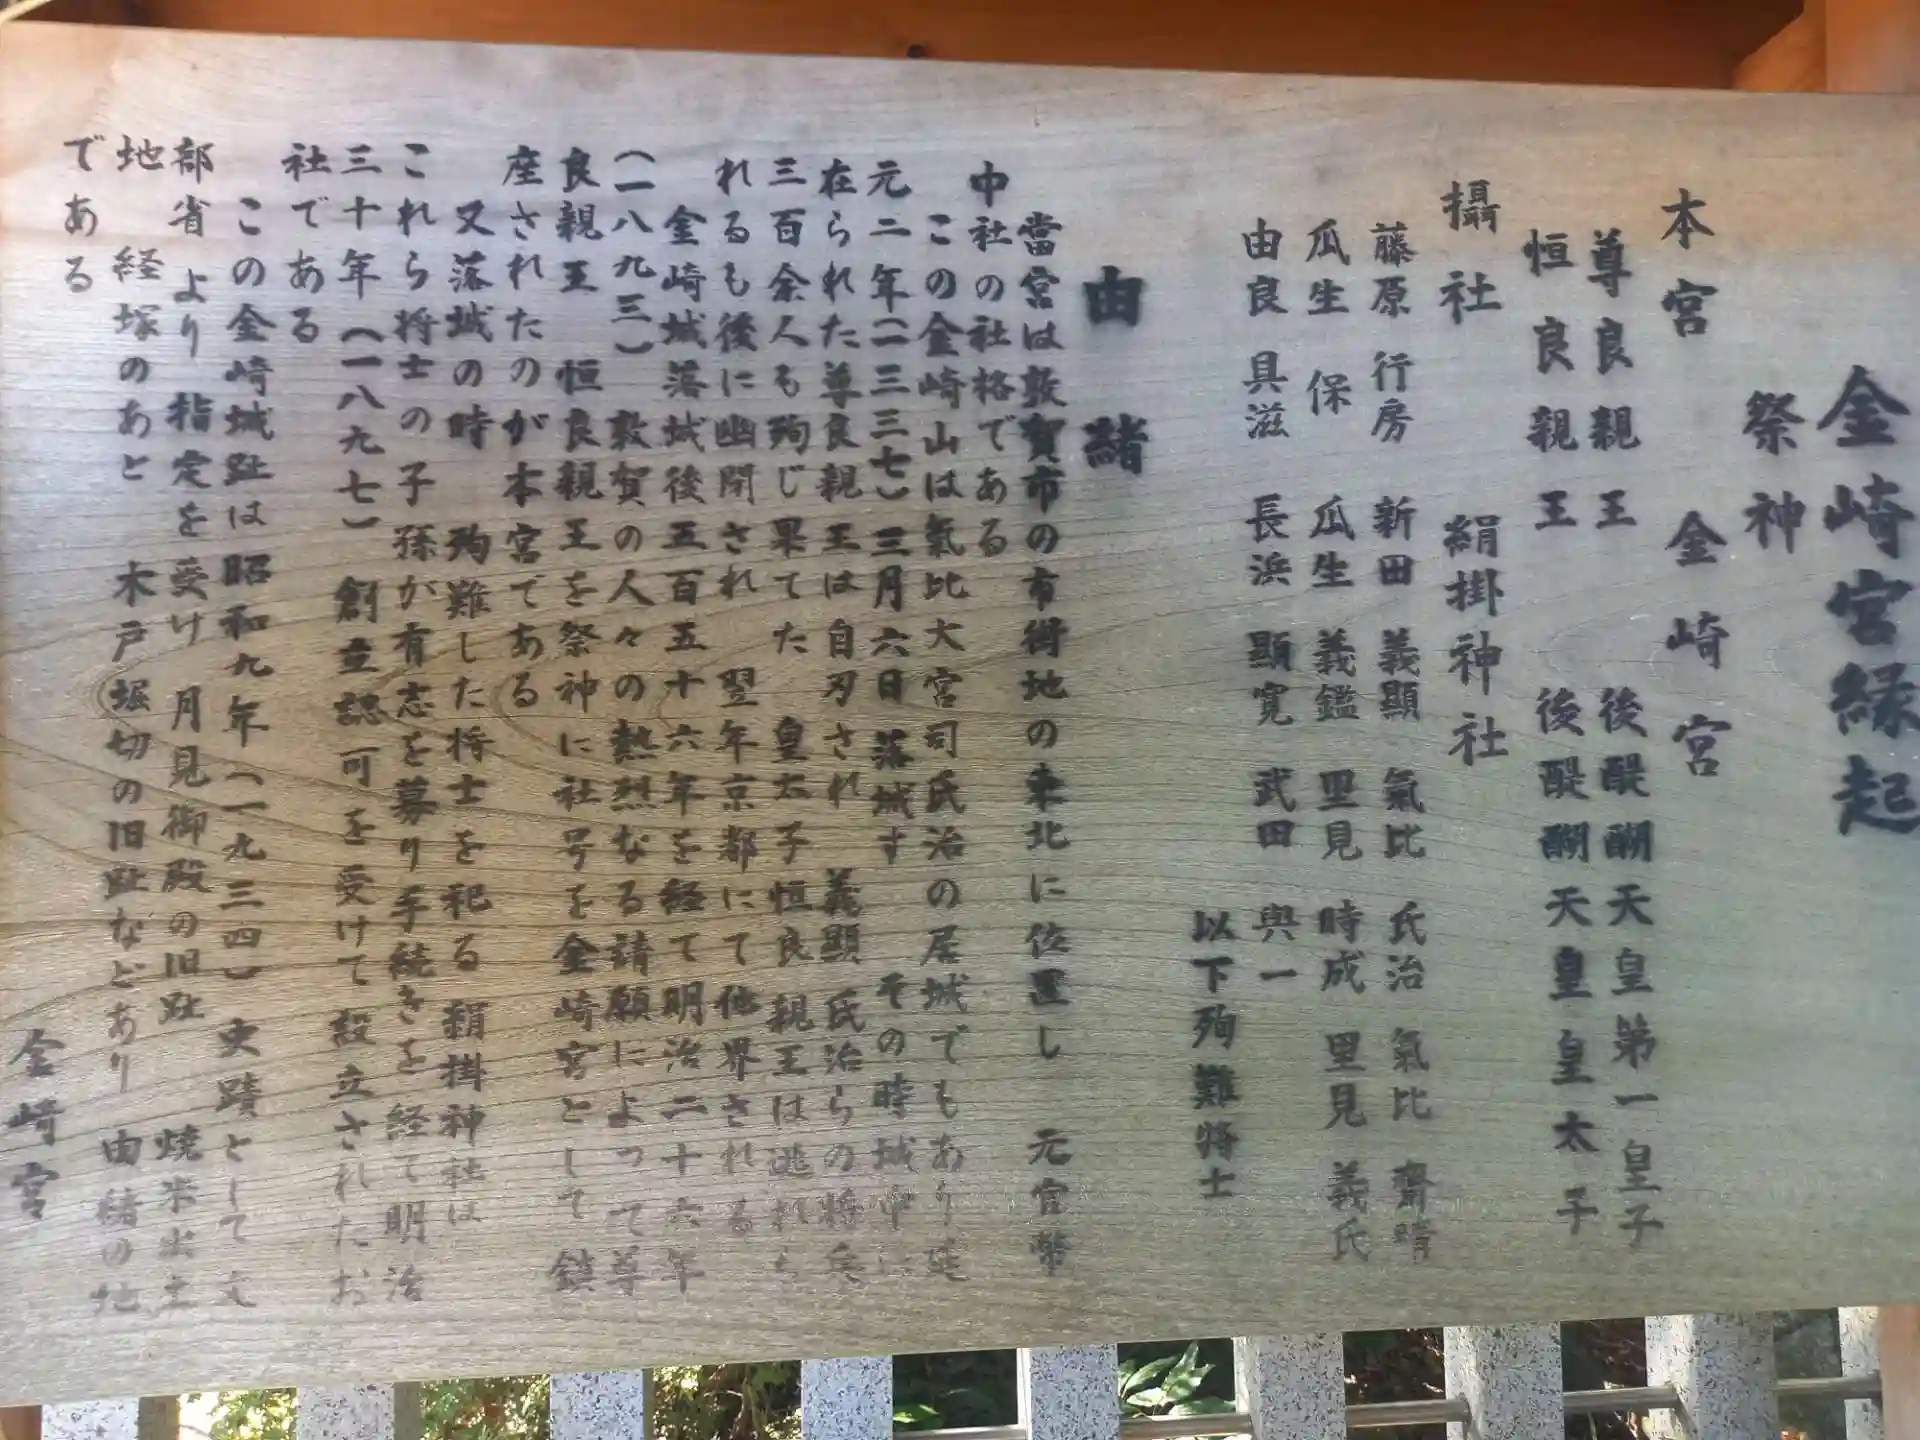 金崎宮縁起
祭神
本宮 金崎宮
尊良親王 後醍醐天皇第一皇子
恒良親王 後醍醐天皇皇太子
攝社 絹掛神社
藤原行房 新田義顯 氣比氏治 氣比齋晴
瓜生保 瓜生義鑑 里見時成 里見義氏
由良具滋 長浜顯寛 武田與一
以下殉難将士
由緒
當宮は敦賀市の市街地の東北に位置し 元官幣
中社の社格である
この金崎山は氣比大宮司氏治の居城でもあり延
元二年(一三三七)三月六日落城す その時城中に
在られた尊良親王は自刃され 義顯 氏治らの将兵
三百余人も殉じ果てた 皇太子恒良親王は逃れら
れるも後に幽閉され 翌年京都にて他界される
金崎城落城後五百五十六年を経て明治二十六年
(一八九三)敦賀の人々の熱烈なる請願によって尊
良親王 恒良親王を祭神に社号を金崎宮として鎮
座されたのが本宮である
又落城の時 殉難した将士を祀る 絹掛神社は
これら将士の子孫が有志を募り手続きを経て明治
三十年(一八九七)創立認可を受けて設立されたお
社である
この金崎城趾は昭和九年(一九三四)史蹟として文
部省より指定を受け 月見御殿の旧趾 焼米出土
地 経塚のあと 木戸 堀切の旧趾などあり 由緒の地
である
金崎宮